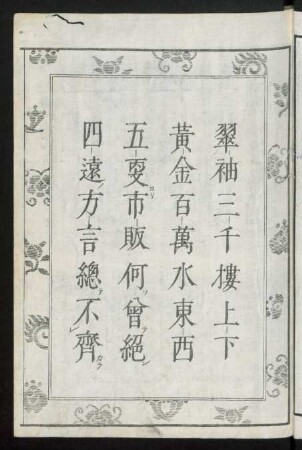 翠袖三千樓上下
黃金百萬水東西
五更市販何曾絕
四遠方言總不齊